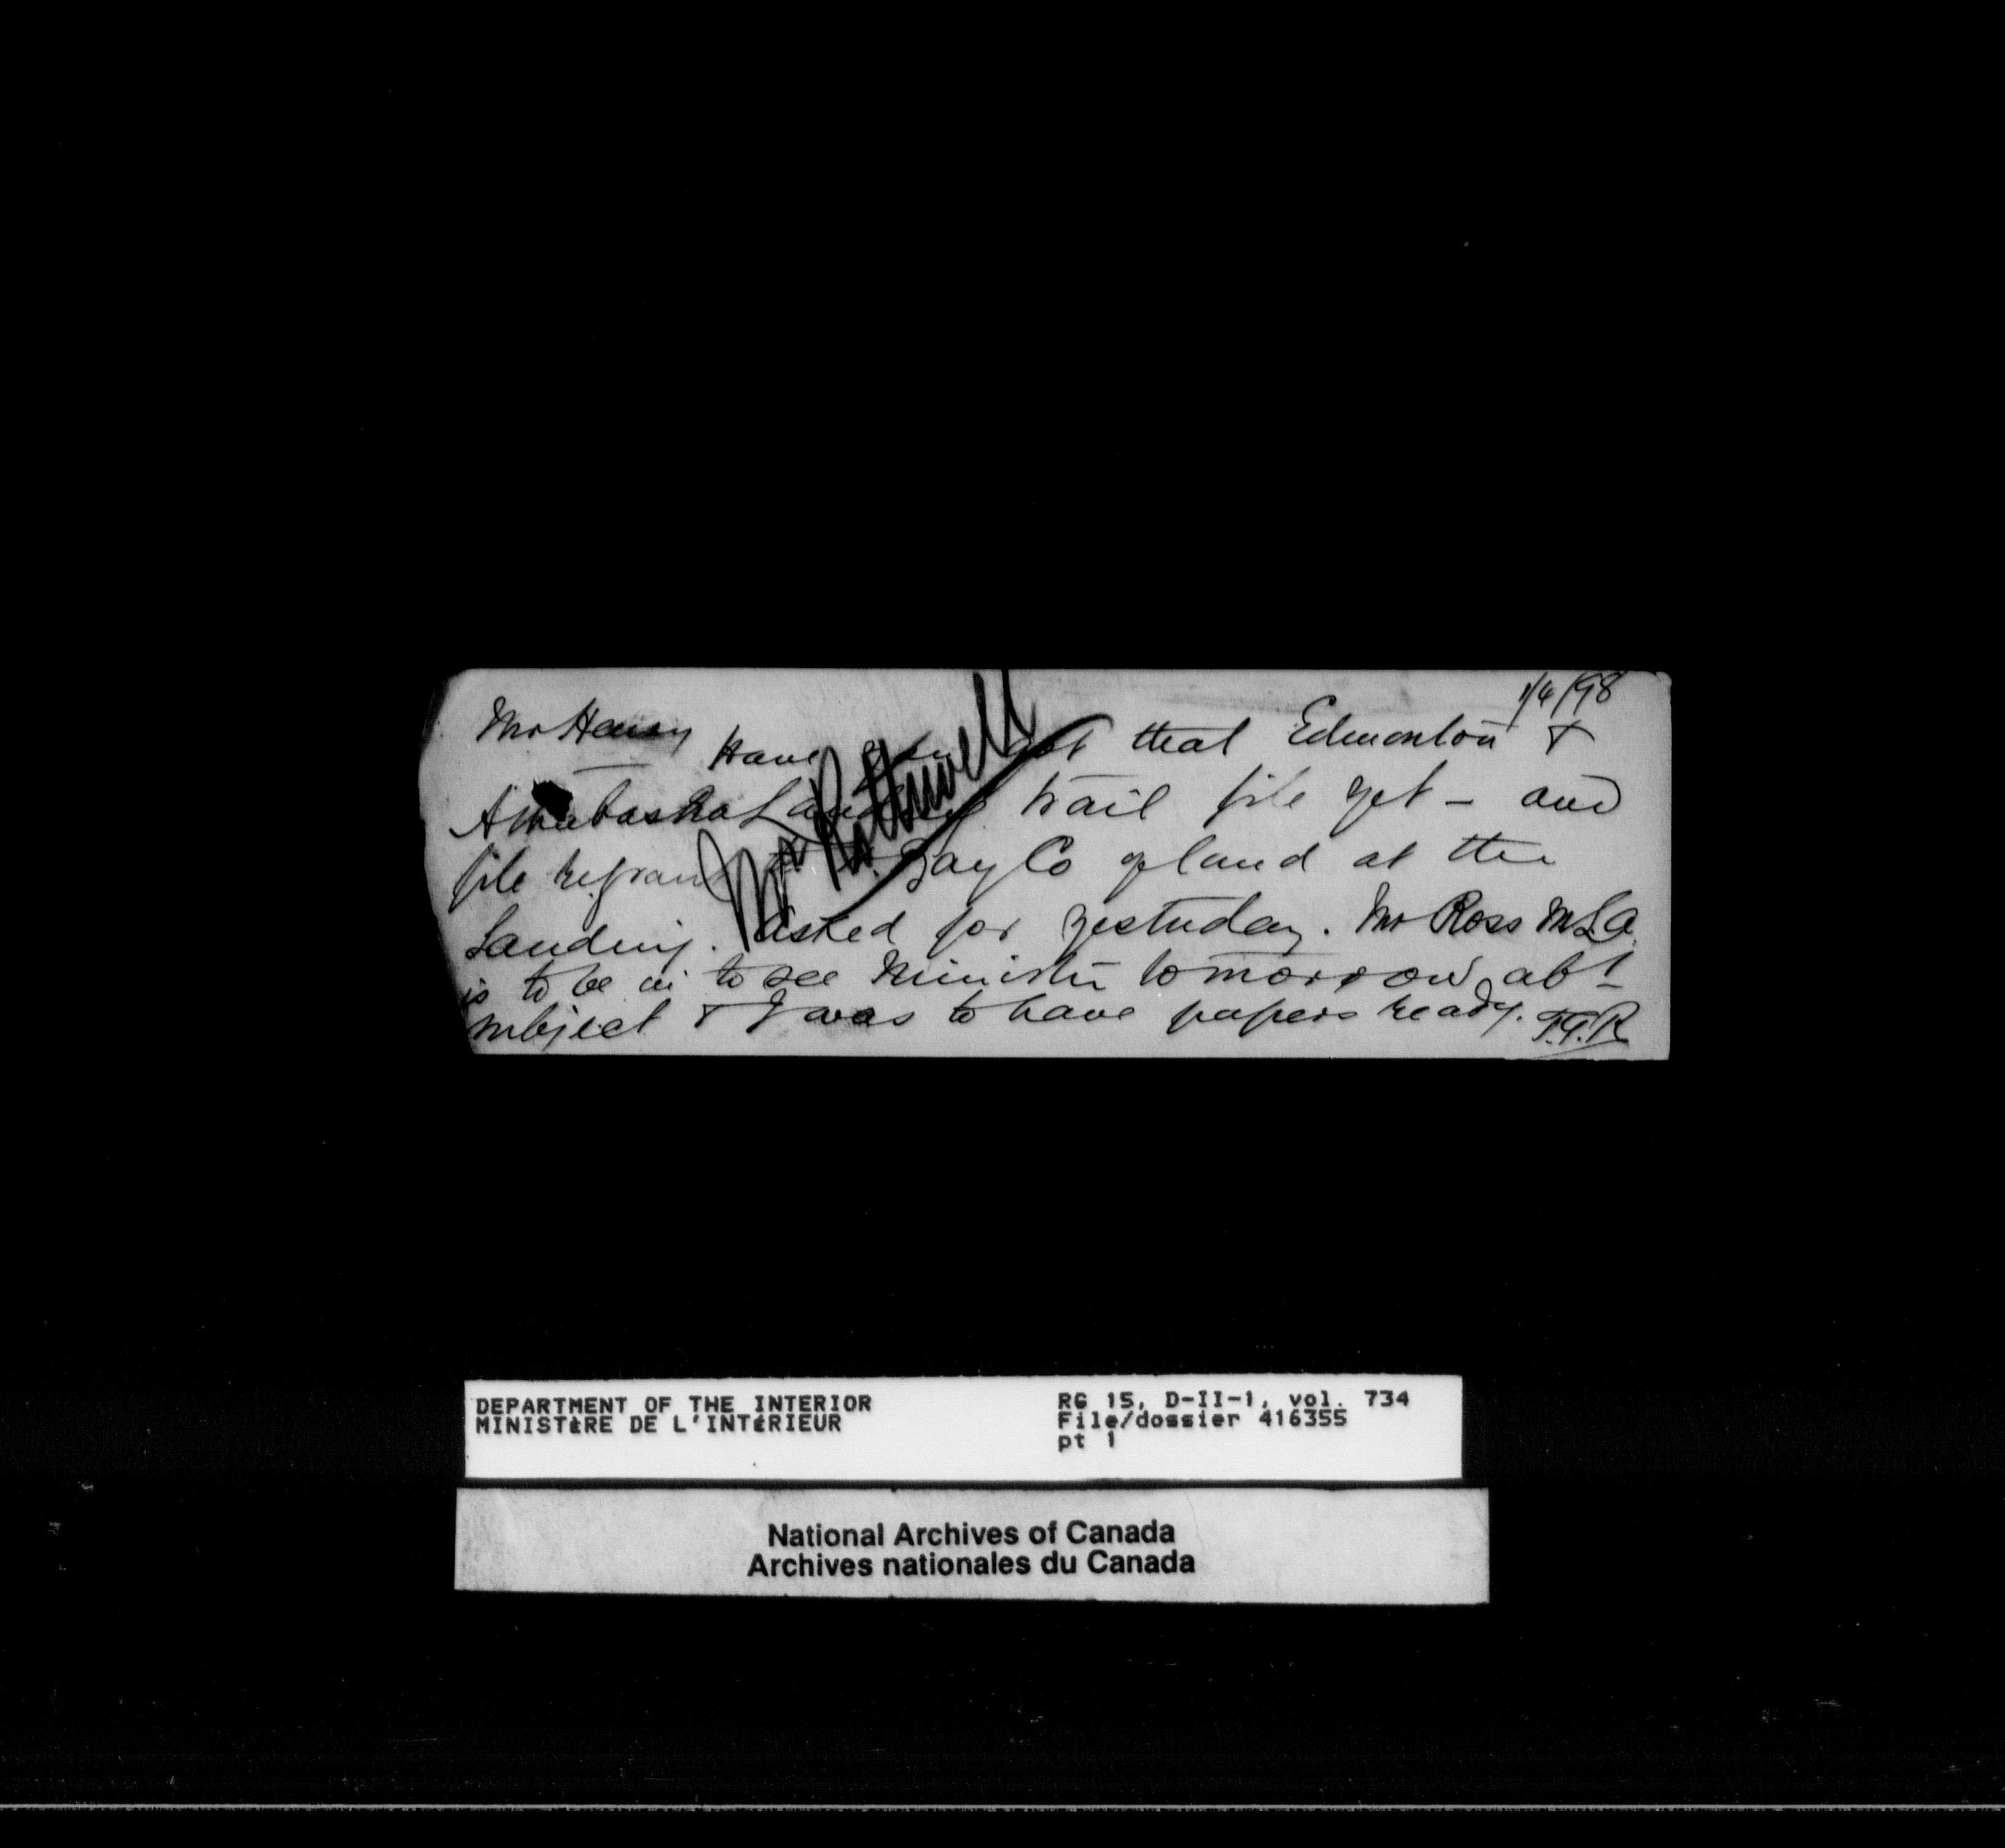 1/4/98
Mr Henry
Have you got that Edmonton &
Athabaska Landing trail file yet - and
file re grant to H. Bay Co of land at the
Landing. Asked for yesterday. Mr Ross MLA
is to be in to see Minister tomorrow abt
subject & I was to have papers ready. T.G.R
Mr Rothwell
DEPARTMENT OF THE INTERIOR
MINISTÈRE DE L'INTÉRIEUR
RG 15, D-II-1, vol. 734
File/dossier 416355
pt 1
National Archives of Canada
Archives nationales du Canada